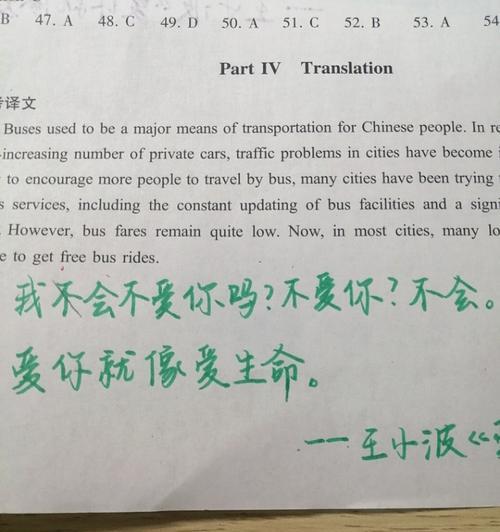 B 47. A 48. C 49. D 50. A 51. C 52. B 53. A 54
Part IV Translation
译文
Buses used to be a major means of transportation for Chinese people. In re
-increasing number of private cars, traffic problems in cities have become
to encourage more people to travel by bus, many cities have been trying
s services, including the constant updating of bus facilities and a signi
. However, bus fares remain quite low. Now, in most cities, many lo
e to get free bus rides.
我不会不爱你吗?不爱你?不会。
爱你就像爱生命。
——王小波《